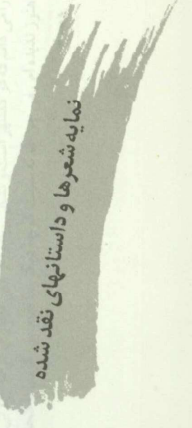 نمایه شعرها و داستانهای نقد شده